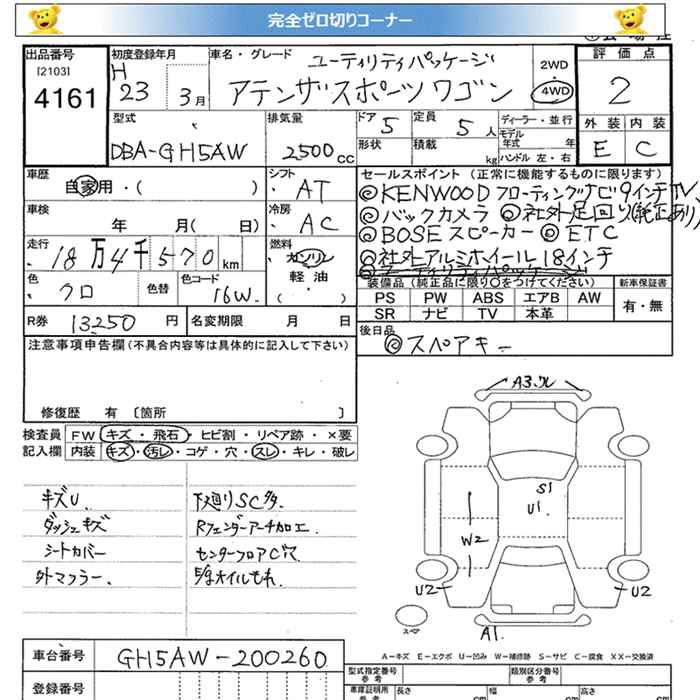 完全ゼロ切りコーナー
出品番号
[2103]
4161
初度登録年月
H
23 3月
車名・グレード
ユーティリティパッケージ
アテンザスポーツワゴン
2WD
4WD
評価点
2
外装 内装
E C
型式
DBA-GH5AW
排気量
2500cc
ドア 5
定員 5人
形状
積載 kg
ディーラー・並行
モデル
年式 年
ハンドル 左・右
車歴
自家用・( )
シフト
AT
車検
年 月( 日)
冷房
AC
走行
18万4千570km
燃料
ガソリン
軽・油
( )
色
クロ
色替
色コード
16W
R券 13250円
名変期限 月 日
セールスポイント (正常に機能するものに限ります)
◎KENWOODフローティングナビ9インチTV
◎バックカメラ ◎社外足回り(純正あり)
◎BOSEスピーカー ◎ETC
◎社外アルミホイール18インチ
◎ユーティリティパッケージ
装備品(純正品に限り○をつけてください)
新車保証書
PS PW ABS エアB AW
SR ナビ TV 本革
有・無
後日品
◎スペアキー
注意事項申告欄(不具合内容等は具体的に記入して下さい)
修復歴 有〔箇所 〕
検査員
記入欄
FW キズ・飛石・ヒビ割・リペア跡・×要
内装 キズ・汚レ・コゲ・穴・スレ・キレ・破レ
キズU.
ダッシュキズ
シートカバー
外マフラー.
下廻りSC多.
Rフェンダーアーチ加工
A3.ワレ
S1
U1.
W2
U2
U2
A1.
スペア
A-キズ E-エクボ U-凹み W-補修跡 S-サビ C-腐食 XX-交換済
車台番号
GH5AW-200260
登録番号
型式指定番号
参考
類別区分番号
参考
車庫証明用
参考
長さ
cm
幅
cm
高さ
cm